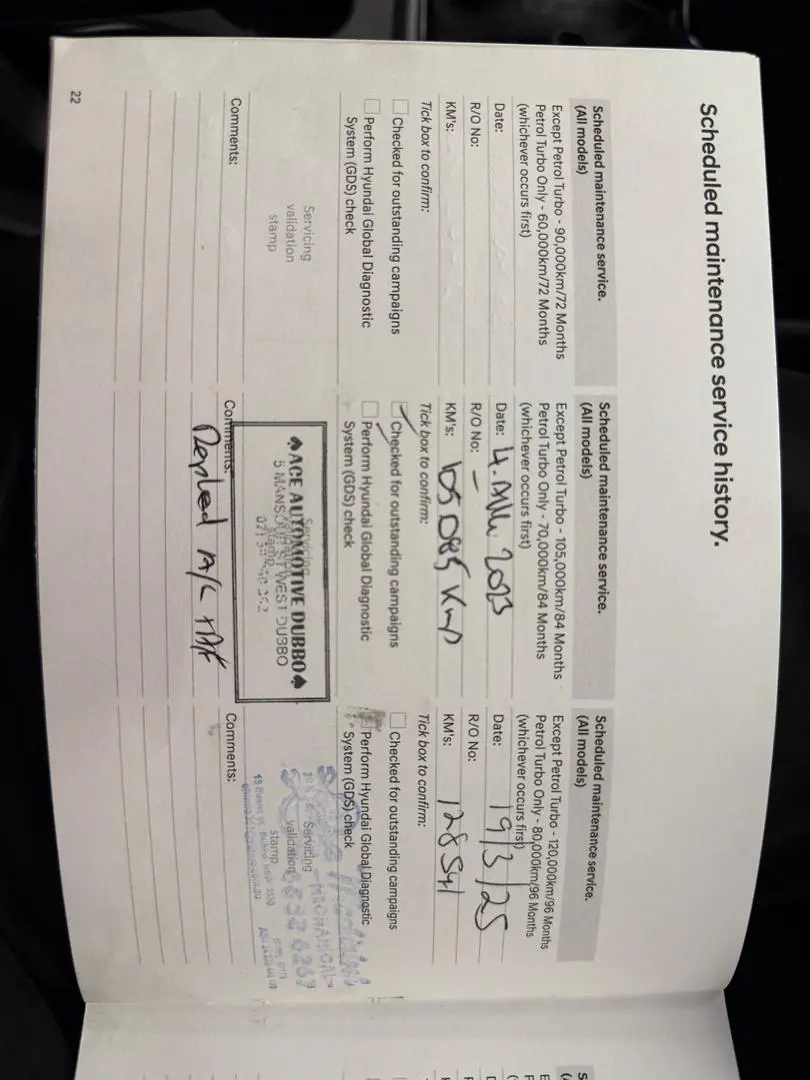 Scheduled maintenance service history.
Scheduled maintenance service.
(All models)
Except Petrol Turbo - 90,000km/72 Months
Petrol Turbo Only - 60,000km/72 Months
(whichever occurs first)
Date:
R/O No:
KM's:
Tick box to confirm:
Checked for outstanding campaigns
Perform Hyundai Global Diagnostic
System (GDS) check
Servicing
validation
stamp
Comments:
Scheduled maintenance service.
(All models)
Except Petrol Turbo - 105,000km/84 Months
Petrol Turbo Only - 70,000km/84 Months
(whichever occurs first)
Date: 4. 2023
R/O No: -
KM's: 105085 Kms
Tick box to confirm:
Checked for outstanding campaigns
Perform Hyundai Global Diagnostic
System (GDS) check
Servicing
♠ ACE AUTOMOTIVE DUBBO ♠
5 MANSOUR ST WEST DUBBO
stamp
Comments:
A/C
Scheduled maintenance service.
(All models)
Except Petrol Turbo - 120,000km/96 Months
Petrol Turbo Only - 80,000km/96 Months
(whichever occurs first)
Date: 19/3/25
R/O No:
KM's: 128541
Tick box to confirm:
Checked for outstanding campaigns
Perform Hyundai Global Diagnostic
System (GDS) check
MECHANICAL
Servicing
validation
stamp
Comments:
22